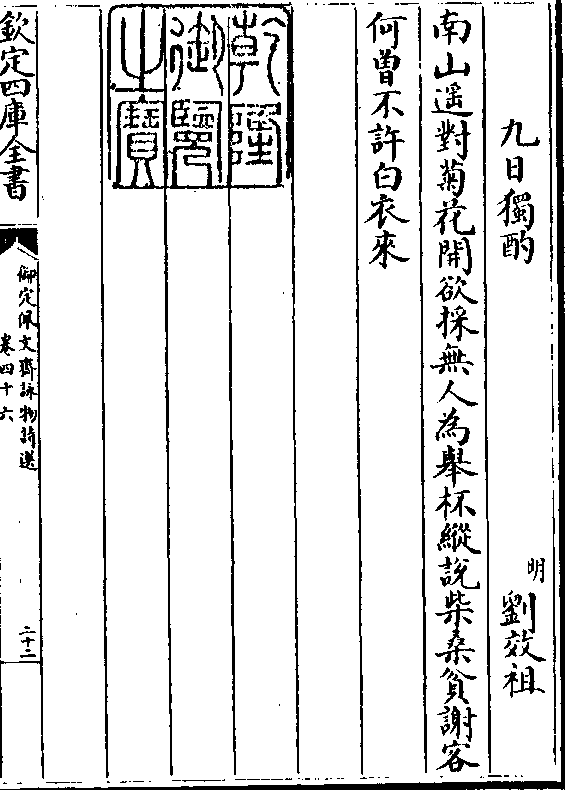 九日獨酌　明　劉效祖
南山遥對菊花開欲採無人為舉杯縱說柴桑貧謝客
何曽不許白衣來
乾隆
御覽
之寶
欽定四庫全書
御定佩文齋詠物詩選
卷四十六
二十二